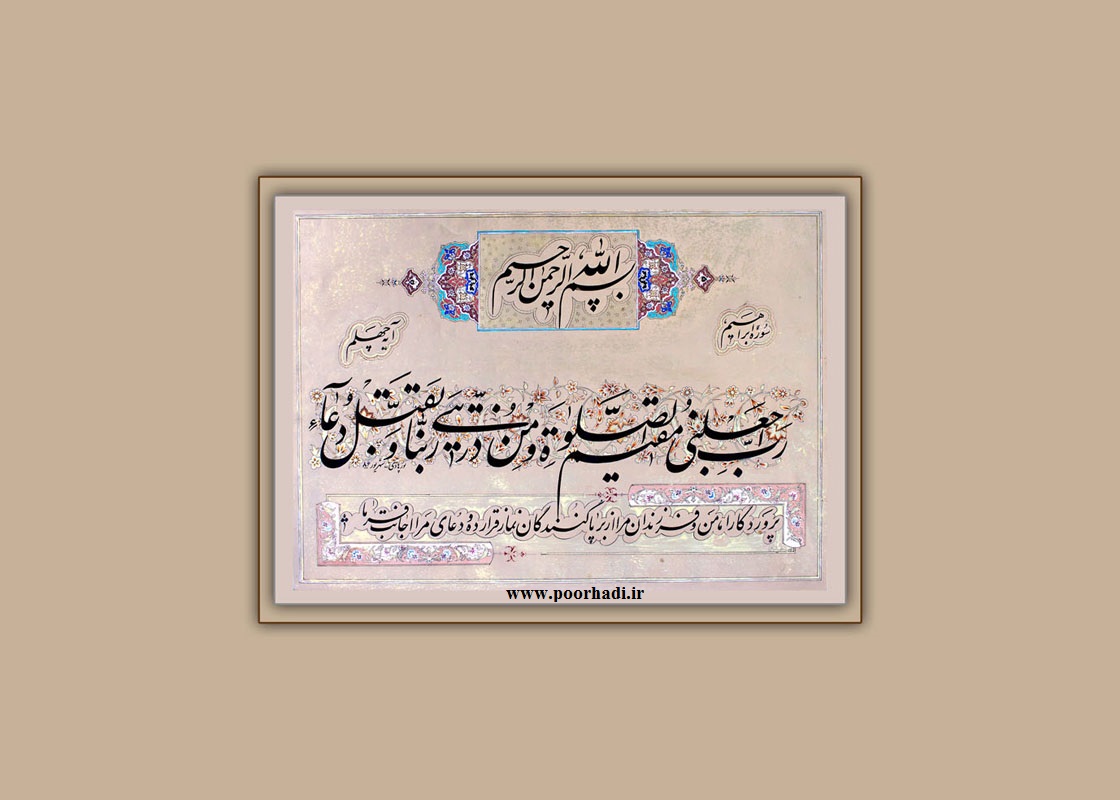 بسم الله الرحمن الرحیم
سُورهٔ ابراهیم
آیه چهلم
رَبِّ اجْعَلْنِی مُقِیمَ الصَّلوٰةِ وَ مِنْ ذُرِّیَّتِی رَبَّنَا وَ تَقَبَّلْ دُعَآءِ
پروردگارا، ما من و فرزندان مرا از برپا کنندگان نماز قرار ده و دعای مرا اجابت فرما
www.poorhadi.ir